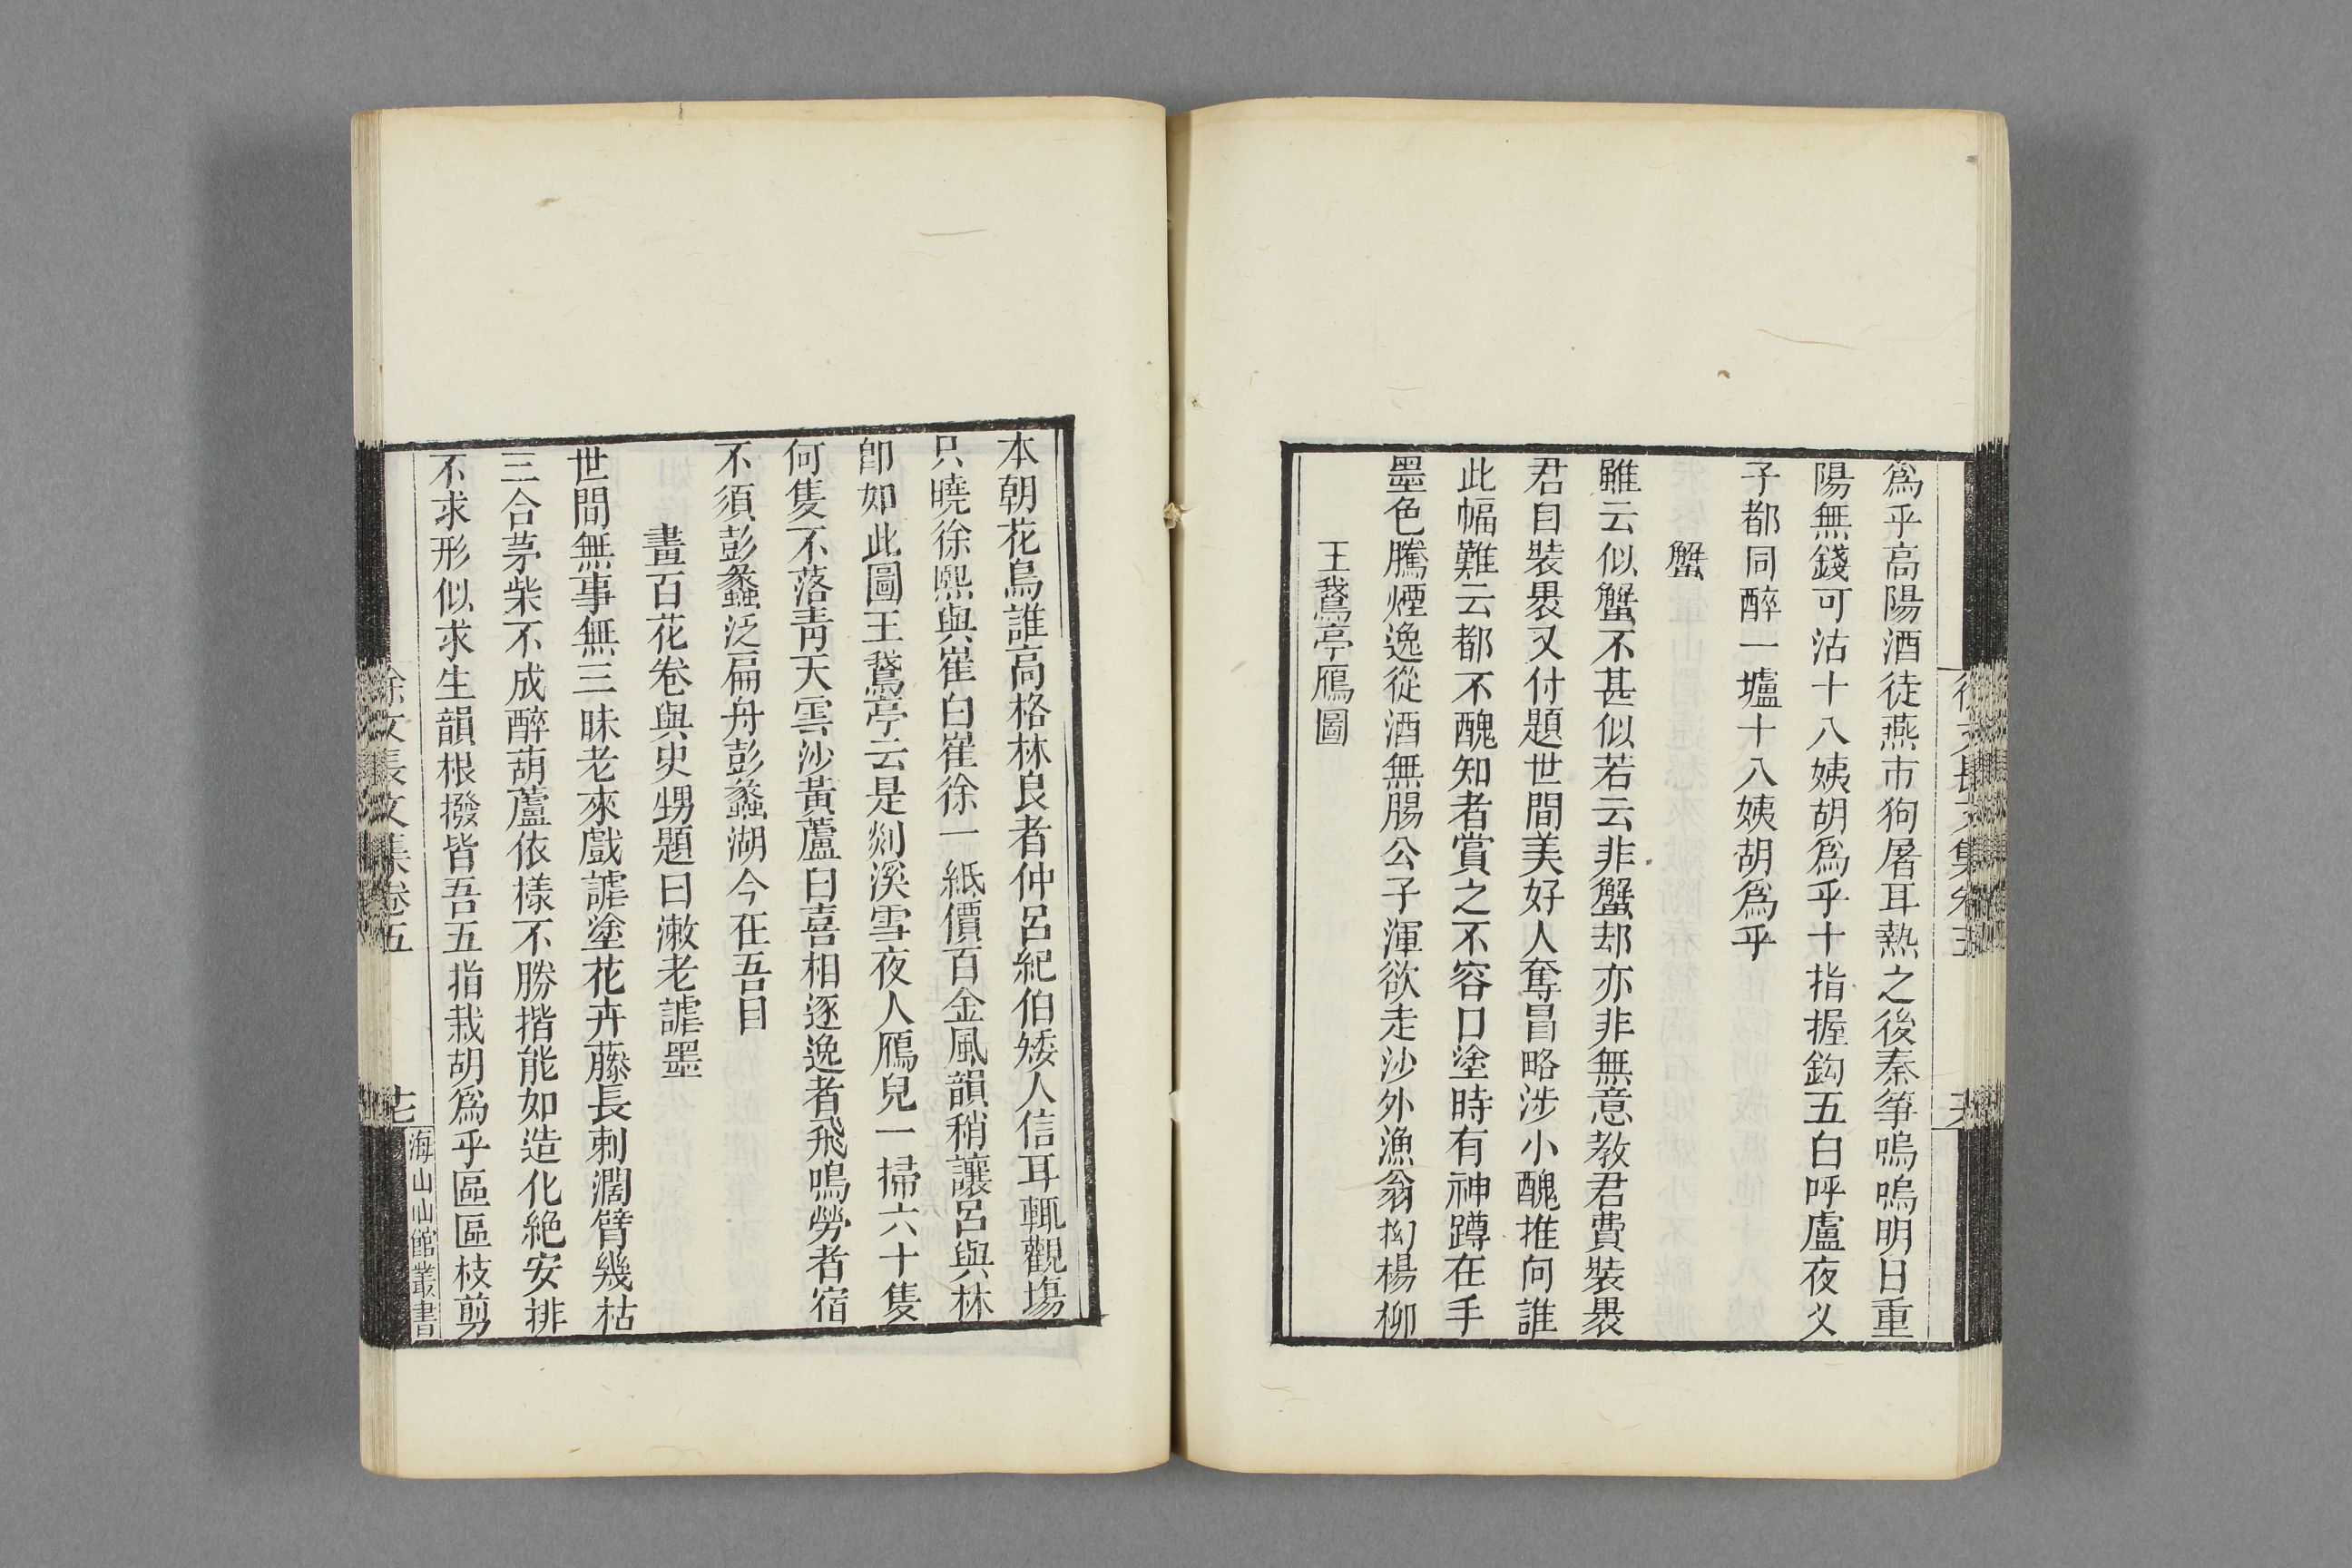 爲乎高陽酒徒燕市狗屠耳熱之後秦筝嗚嗚明日重
陽無錢可沽十八姨胡爲乎十指握鈎五白呼盧夜义
子都同醉一壚十八姨胡爲乎
蟹
雖云似蟹不甚似若云非蟹却亦非無意教君費裝褁
君自裝褁又付題世間美好人奪冒略涉小醜推向誰
此幅難云都不醜知者賞之不容口塗時有神蹲在手
墨色騰煙逸從酒無腸公子渾欲走沙外漁翁拗楊柳
王鵞亭鴈圖
本朝花鳥誰高格林良者仲呂紀伯矮人信耳輒觀塲
只曉徐熙與崔白崔徐一紙價百金風韻稍讓呂與林
卽如此圖王鵞亭云是剡溪雪夜人鴈兒一掃六十隻
何隻不落靑天雲沙黃蘆白喜相逐逸者飛鳴勞者宿
不須彭蠡泛扁舟彭蠡湖今在吾目
畫百花卷與史甥題曰漱老謔墨
世間無事無三昧老來戲謔塗花卉藤長刺濶臂幾枯
三合茅柴不成醉葫蘆依樣不勝揩能如造化絶安排
不求形似求生韻根撥皆吾五指栽胡爲乎區區枝剪
徐文長文集卷五
海山仙館叢書